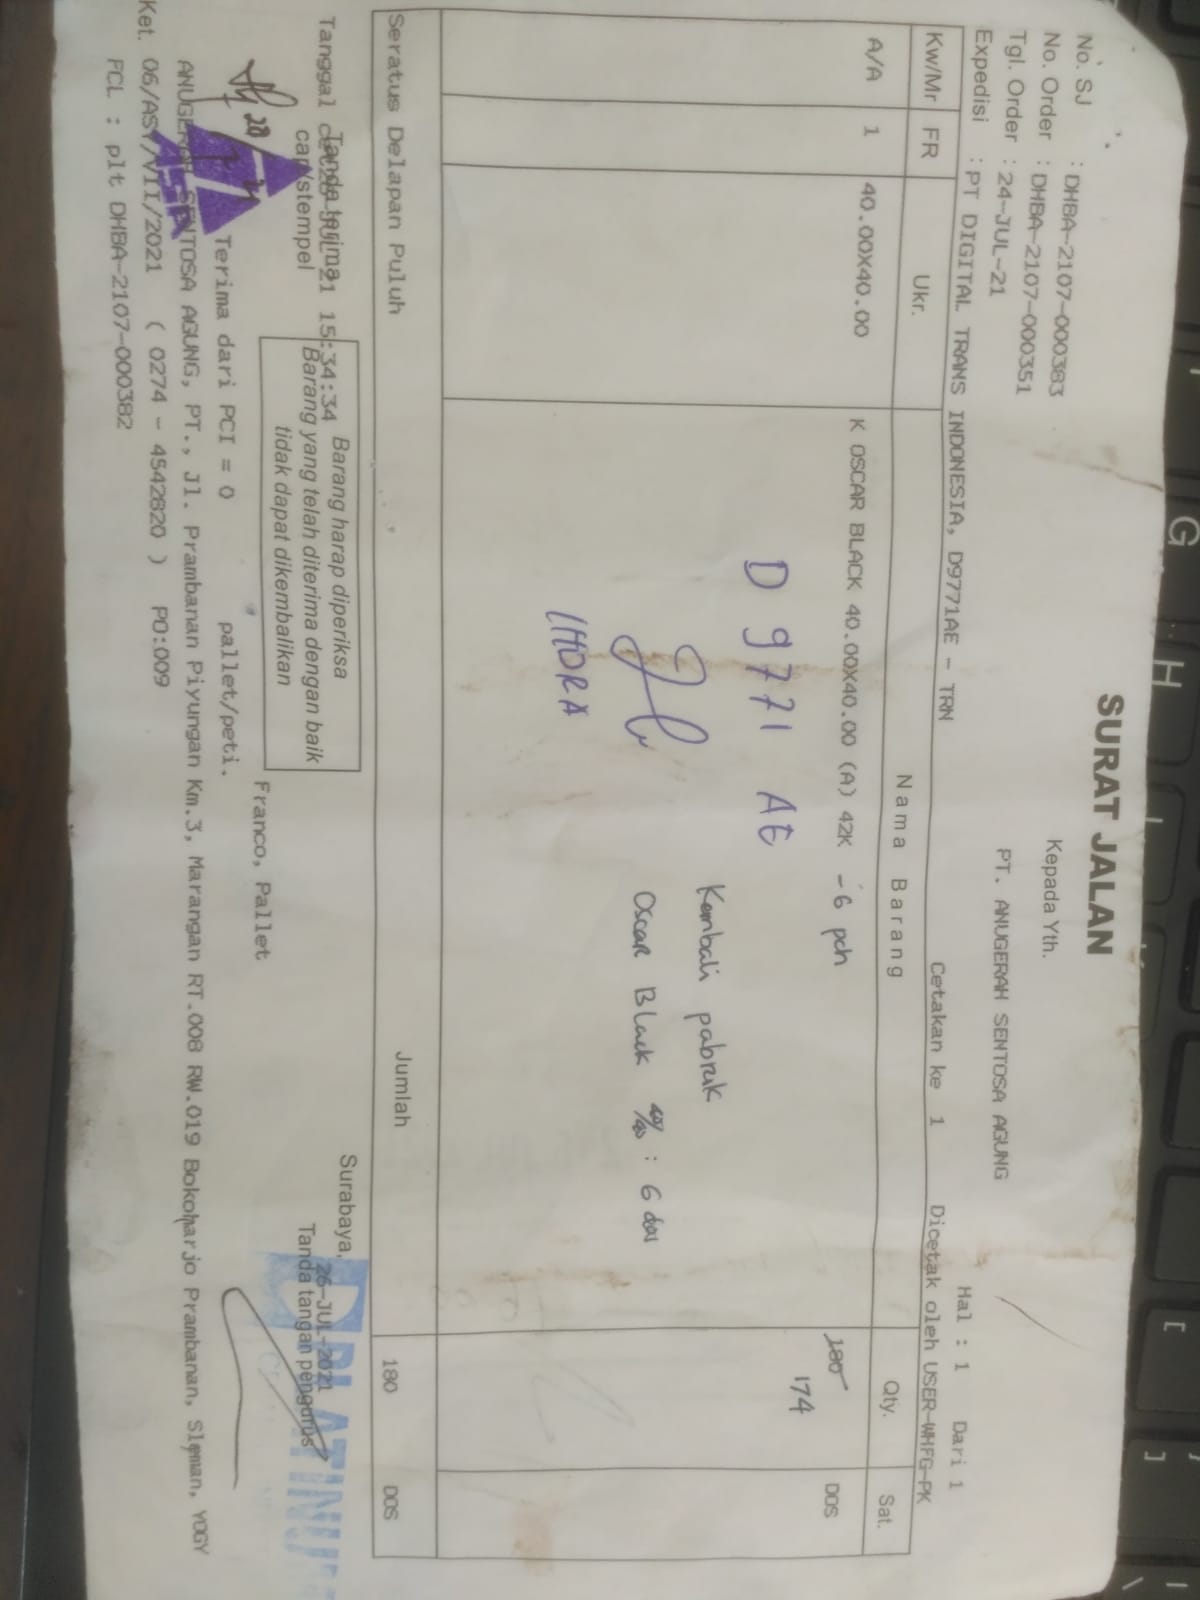 SURAT JALAN
No. SJ : DHBA-2107-000383
No. Order : DHBA-2107-000351
Tgl. Order : 24-JUL-21
Expedisi : PT DIGITAL TRANS INDONESIA, D9771AE - TRN
Kepada Yth.
PT. ANUGERAH SENTOSA AGUNG
Hal : 1 Dari 1
Cetakan ke 1 Dicetak oleh USER-WHFG-PK
Kw/Mr FR Ukr. Nama Barang Qty. Sat.
A/A 1 40.00X40.00 K OSCAR BLACK 40.00X40.00 (A) 42K - 6 pch 180 DOS
174
D 9771 AE
Kembali pabrik
Oscar Black 40/40 : 6 dos
INDRA
Seratus Delapan Puluh Jumlah 180 DOS
Tanggal cetak 26-JUL-21 15:34:34
Tanda terima
cap/stempel
Barang harap diperiksa
Barang yang telah diterima dengan baik
tidak dapat dikembalikan
Surabaya, 26-JUL-2021
Tanda tangan pengurus
PLATINUM
Franco, Pallet
Terima dari PCI = 0 pallet/peti.
ANUGERAH SENTOSA AGUNG, PT., Jl. Prambanan Piyungan Km.3, Marangan RT.008 RW.019 Bokoharjo Prambanan, Sleman, YOGY
Ket. 06/ASY/VII/2021 ( 0274 - 4542820 ) PO:009
FCL : plt DHBA-2107-000382
G
H
[
]
\